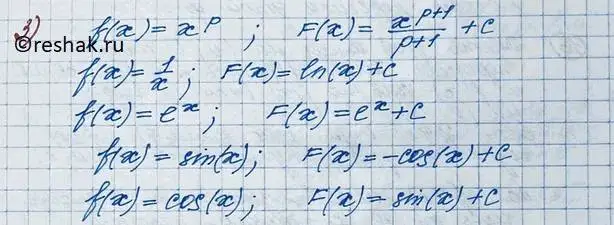 3) f(x) = x^p ; F(x) = x^(p+1)/(p+1) + C
©reshak.ru
f(x) = 1/x ; F(x) = ln(x) + C
f(x) = e^x ; F(x) = e^x + C
f(x) = sin(x) ; F(x) = -cos(x) + C
f(x) = cos(x) ; F(x) = sin(x) + C